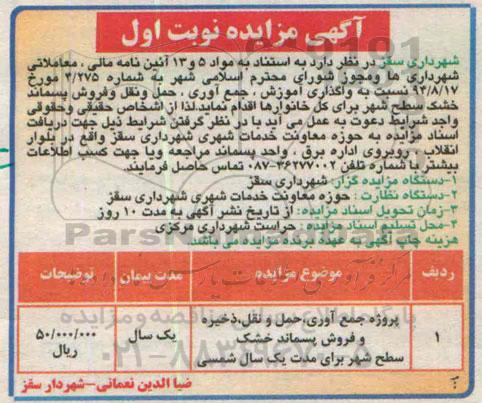 آگهی مزایده نوبت اول
شهرداری سقز در نظر دارد به استناد به مواد ۵ و ۱۳ آئین نامه مالی ، معاملاتی
شهرداری ها ومجوز شورای محترم اسلامی شهر به شماره ۳/۲۷۵ مورخ
۹۴/۸/۱۷ نسبت به واگذاری آموزش ، جمع آوری ، حمل ونقل وفروش پسماند
خشک سطح شهر برای کل خانوارها اقدام نماید.لذا از اشخاص حقیقی وحقوقی
واجد شرایط دعوت به عمل می آید با در نظر گرفتن شرایط ذیل جهت دریافت
اسناد مزایده به حوزه معاونت خدمات شهری شهرداری سقز واقع در بلوار
انقلاب ، روبروی اداره برق ، واحد پسماند مراجعه ویا جهت کسب اطلاعات
بیشتر با شماره تلفن ۳۶۲۷۷۰۰۲-۰۸۷ تماس حاصل فرمایند.
۱-دستگاه مزایده گزار: شهرداری سقز
۲-دستگاه نظارت : حوزه معاونت خدمات شهری شهرداری سقز
۳-زمان تحویل اسناد مزایده: از تاریخ نشر آگهی به مدت ۱۰ روز
۴-محل تسلیم اسناد مزایده : حراست شهرداری مرکزی
هزینه چاپ آگهی به عهده برنده مزایده می باشد
ردیف موضوع مزایده مدت پیمان توضیحات
۱ پروژه جمع آوری،حمل و نقل،ذخیره
و فروش پسماند خشک
سطح شهر برای مدت یک سال شمسی
یک سال
۵۰/۰۰۰/۰۰۰
ریال
ضیا الدین نعمانی-شهردار سقز